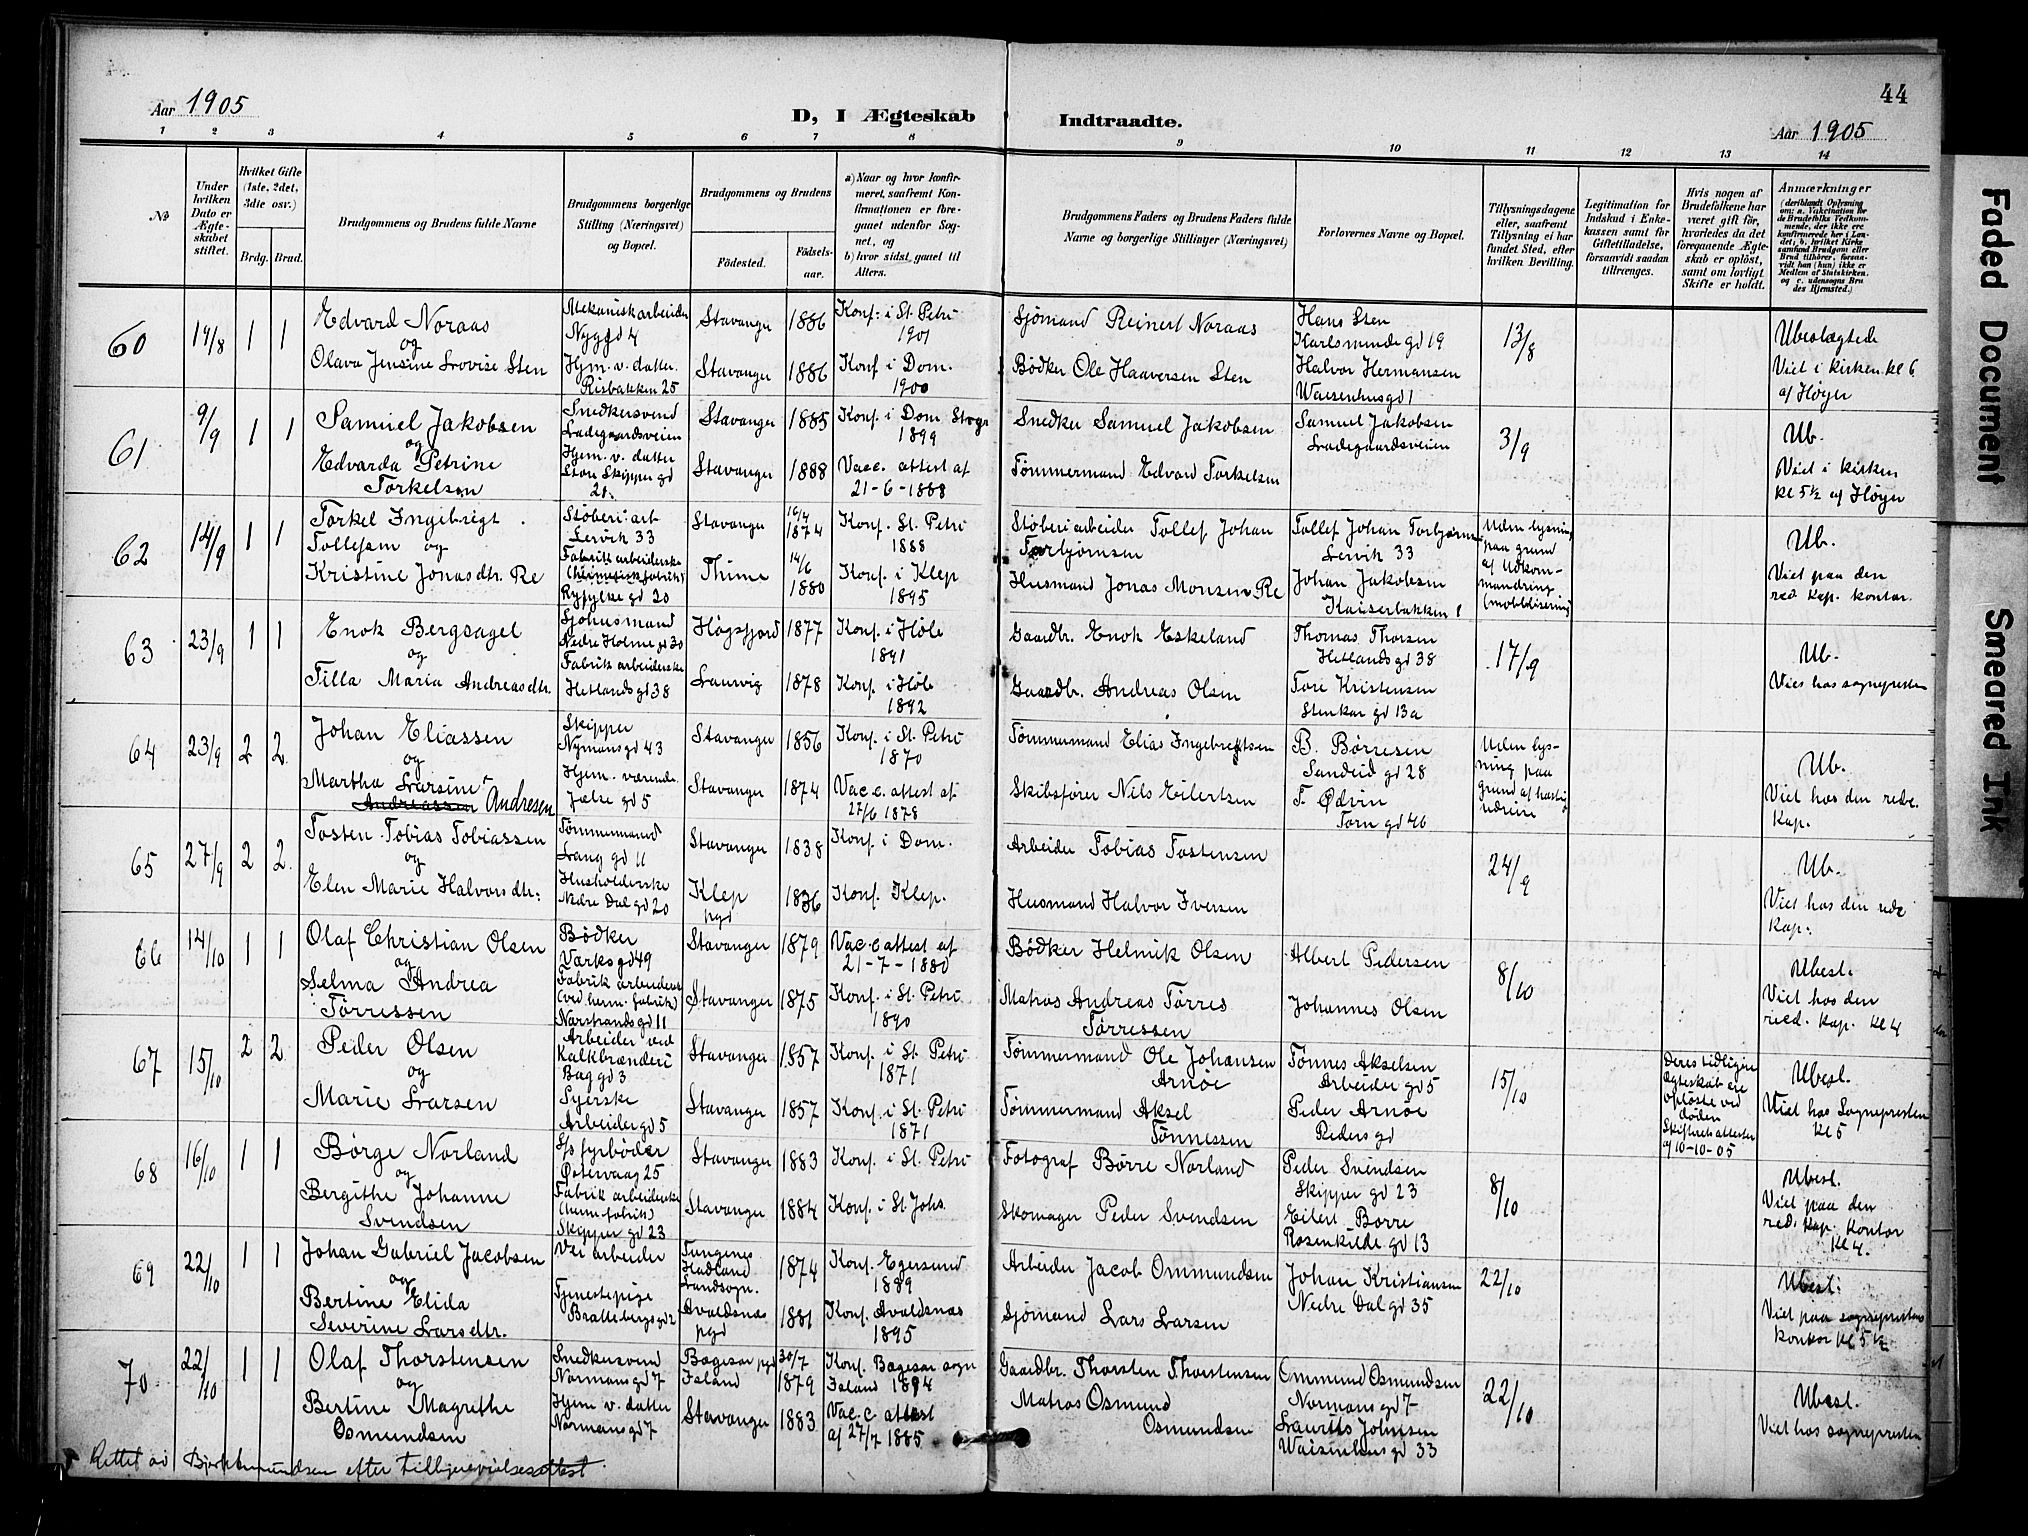 44
Aar 1905
D, I Ægteskab Indtraadte.
Aar 1905
1 2 3 4 5 6 7 8 9 10 11 12 13 14
No
Under hvilken Dato er Ægteskabet stiftet.
Hvilket Gifte (1ste, 2det, 3die osv.)
Brdg. Brud.
Brudgommens og Brudens fulde Navne
Brudgommens borgerlige Stilling (Næringsvei) og Bopæl.
Brudgommens og Brudens
Fødested.
Fødsels-aar.
a) Naar og hvor konfirmeret, saafremt Konfirmationen er foregaaet udenfor Sognet, og
b) hvor sidst gaaet til Alters.
Brudgommens Faders og Brudens Faders fulde Navne og borgerlige Stillinger (Næringsvei)
Forlovernes Navne og Bopæl.
Tillysningsdagene eller, saafremt Tillysning ei har fundet Sted, efter hvilken Bevilling.
Legitimation for Indskud i Enkekassen samt for Giftetilladelse, forsaavidt saadan tiltrænges.
Hvis nogen af Brudefolkene har været gift før, hvorledes da det foregaaende Ægteskab er opløst, samt om lovligt Skifte er holdt.
Anmærkninger
(deriblandt Oplysning om: a. Vakcination for de Brudefolks Vedkommende, der ikke ere konfirmerede her i Landet; b. hvilket Kirkesamfund Brudgom eller Brud tilhører, forsaavidt han (hun) ikke er Medlem af Statskirken. og c. udensogns Brudes Hjemsted.)
60 19/8 1 1
Edvard Noraas
og
Olava Jensine Lovise Sten
Mekanisk arbeider
Nygd 4
Hjm. v. datter.
Risbakken 25
Stavanger 1886
Stavanger 1886
Konf: i St. Petri
1901
Konf i Dom.
1900
Sjømand Reinert Noraas
Bødker Ole Haaversen Sten
Hans Sten
Karlsminde gd 19
Halvor Hermansen
Waisenhusgd 1
13/8
Ubeslægtede
Viet i kirken kl 6
af Høyer
61 9/9 1 1
Samuel Jakobsen
og
Edvarda Petrine
Torkelsen
Snedkersvend
Ladegaardsveien
Hjem. v. datter
Store Skipper gd
21.
Stavanger 1885
Stavanger 1888
Konf. i Dom Stvgr
1899
Vacc. attest af
21-6-1888
Snedker Samuel Jakobsen
Tømmermand Edvard Torkelsen
Samuel Jakobsen
Ladegaardsveien
3/9
Ub.
Viet i kirken
kl 5½ af Høyer
62 14/9 1 1
Torkel Ingebrigt
Tollefsen og
Kristine Jonasdtr. Re
Støberi: arb
Lervik 33
Fabrik arbeiderske
(hermetisk fabrik)
Ryfylke gd 20
Stavanger 16/4 1874
Thime 14/6 1880
Konf. St. Petri
1888
Konf. i Klep
1895
Støberiarbeider Tollef Johan
Torbjørnsen
Husmand Jonas Monsen Re
Tollef Johan Torbjørnsen
Lervik 33
Johan Jakobsen
Kaiserbakken 1
Uden lysning
paa grund
af Udkom-
mandring
(mobilisering)
Ub.
Viet paa den
red. Kap. kontor.
63 23/9 1 1
Enok Bergsagel
og
Tilla Maria Andreasdtr.
Sjohusmand
Nedre Holme gd 30
Fabrik arbeiderske
Hetlandsgd 38
Høgsfjord 1877
Laurvig 1878
Konf. i Høle
1891
Konf. i Høle
1892
Gaardbr. Enok Eskeland
Gaardb. Andreas Olsen
Thomas Thorsen
Hetlandsgd 38
Tore Kristensen
Stenkar gd 13a
17/9
Ub.
Vies hos sognepresten
64 23/9 2 2
Johan Eliassen
og
Martha Larsine
Andreassen Andresen
Skipper
Nymansgd 43
Hjem. værende
Jælse gd 5
Stavanger 1856
Stavanger 1874
Konf. i St. Petri
1870
Vacc. attest af
27/6 1878
Tømmermand Elias Ingebregtsen
Skibsfører Nils Eilertsen
B. Børresen
Sandeid gd 28
T. Ødvin
Torn gd 46
Uden lys-
ning paa
grund af hastig
udreise
Ub.
Viet hos den rede.
Kap.
65 27/9 2 2
Tosten Tobias Tobiassen
og
Elen Marie Halvorsdtr:
Tømmermand
Lang gd 11
Husholderske
Nedre Dal gd 20
Stavanger 1838
Klep
pgd 1836
Konf. i Dom.
Konf. Klep.
Arbeider Tobias Tostensen
Husmand Halvor Iversen
24/9
Ub.
Viet hos den rede
Kap.
66 14/10 1 1
Olaf Christian Olsen
og
Selma Andrea
Tørressen
Bødker
Værksgd 49
Fabrik arbeiderske
(ved herm. fabrik)
Narstrandsgd 11
Stavanger 1879
Stavanger 1875
Vac.c attest af
21-7-1880
Konf. i St. Petri
1890
Bødker Helmik Olsen
Matros Andreas Tørres
Tørressen
Albert Pedersen
Johannes Olsen
8/10
Ubesl.
Viet hos den
red. Kap. Kl 4
67 15/10 2 2
Peder Olsen
og
Marie Larsen
Arbeider ved
Kalkbrænderi
Bag gd 3
Syerske
Arbeider gd 5
Stavanger 1857
Stavanger 1857
Konf. i St. Petri
1871
Konf. i St. Petri
1871
Tømmermand Ole Johansen
Arnøe
Tømmermand Aksel
Tønnessen
Tønnes Akselsen
Arbeider gd 5
Peder Arnøe
Peders gd
15/10
Deres tidligere
Ægteskab ere
opløste ved
døden
Skifterets attester
af 10-10-05
Ubesl.
Viet hos Sognepresten
Kl 5
68 16/10 1 1
Børge Norland
og
Bergithe Johanne
Svendsen
S/s fyrbøder
Østervaag 25
Fabrik arbeiderske
(herm fabrik)
Skipper gd 23
Stavanger 1883
Stavanger 1884
Konf. i St. Petri
Konf. i St. Johs.
Fotograf Børre Norland
Skomager Peder Svendsen
Peder Svendsen
Skipper gd 23
Eilert Borre
Rosenkilde gd 13
8/10
Ubesl.
Viet paa den
red. Kap. Kontor
Kl 4.
69 22/10 1 1
Johan Gabriel Jacobsen
og
Bertine Elida
Severine Larsdtr.
Vei arbeider
Tjenestepige
Brattebergsgd 2
Hadland
Landsogn.
Avaldsnæs
pgd
1874
1881
Konf. Egersund
1889
Konf. Avaldsnæs
1895
Arbeider Jacob Ommundsen
Sjømand Lars Larsen
Johan Kristiansen
Nedre Dal gd 35
22/10
Ubesl:
Viet paa sognepresten
kontor kl 5½
70 22/10 1 1
Olaf Thorstensen
og
Bertine Magrethe
Osmundsen
Snedkersvend
Normansgd 7
Hjem v. datter
Normansgd 7
Bagesar pgd
Island
Stavanger
30/7 1879
1883
Konf. Bagesar sogn
Island 1894
Vac.c. attest
af 27/7 1885
Gaardbr. Thorsten Thorstensen
Matros Osmund
Osmundsen
Ommund Osmundsen
Normansgd 7
Laurits Johnsen
Waisenhusgd 33
22/10
Ubesl.
Viet hos sognepresten
Rettet av efter
Faded Document
Smeared Ink